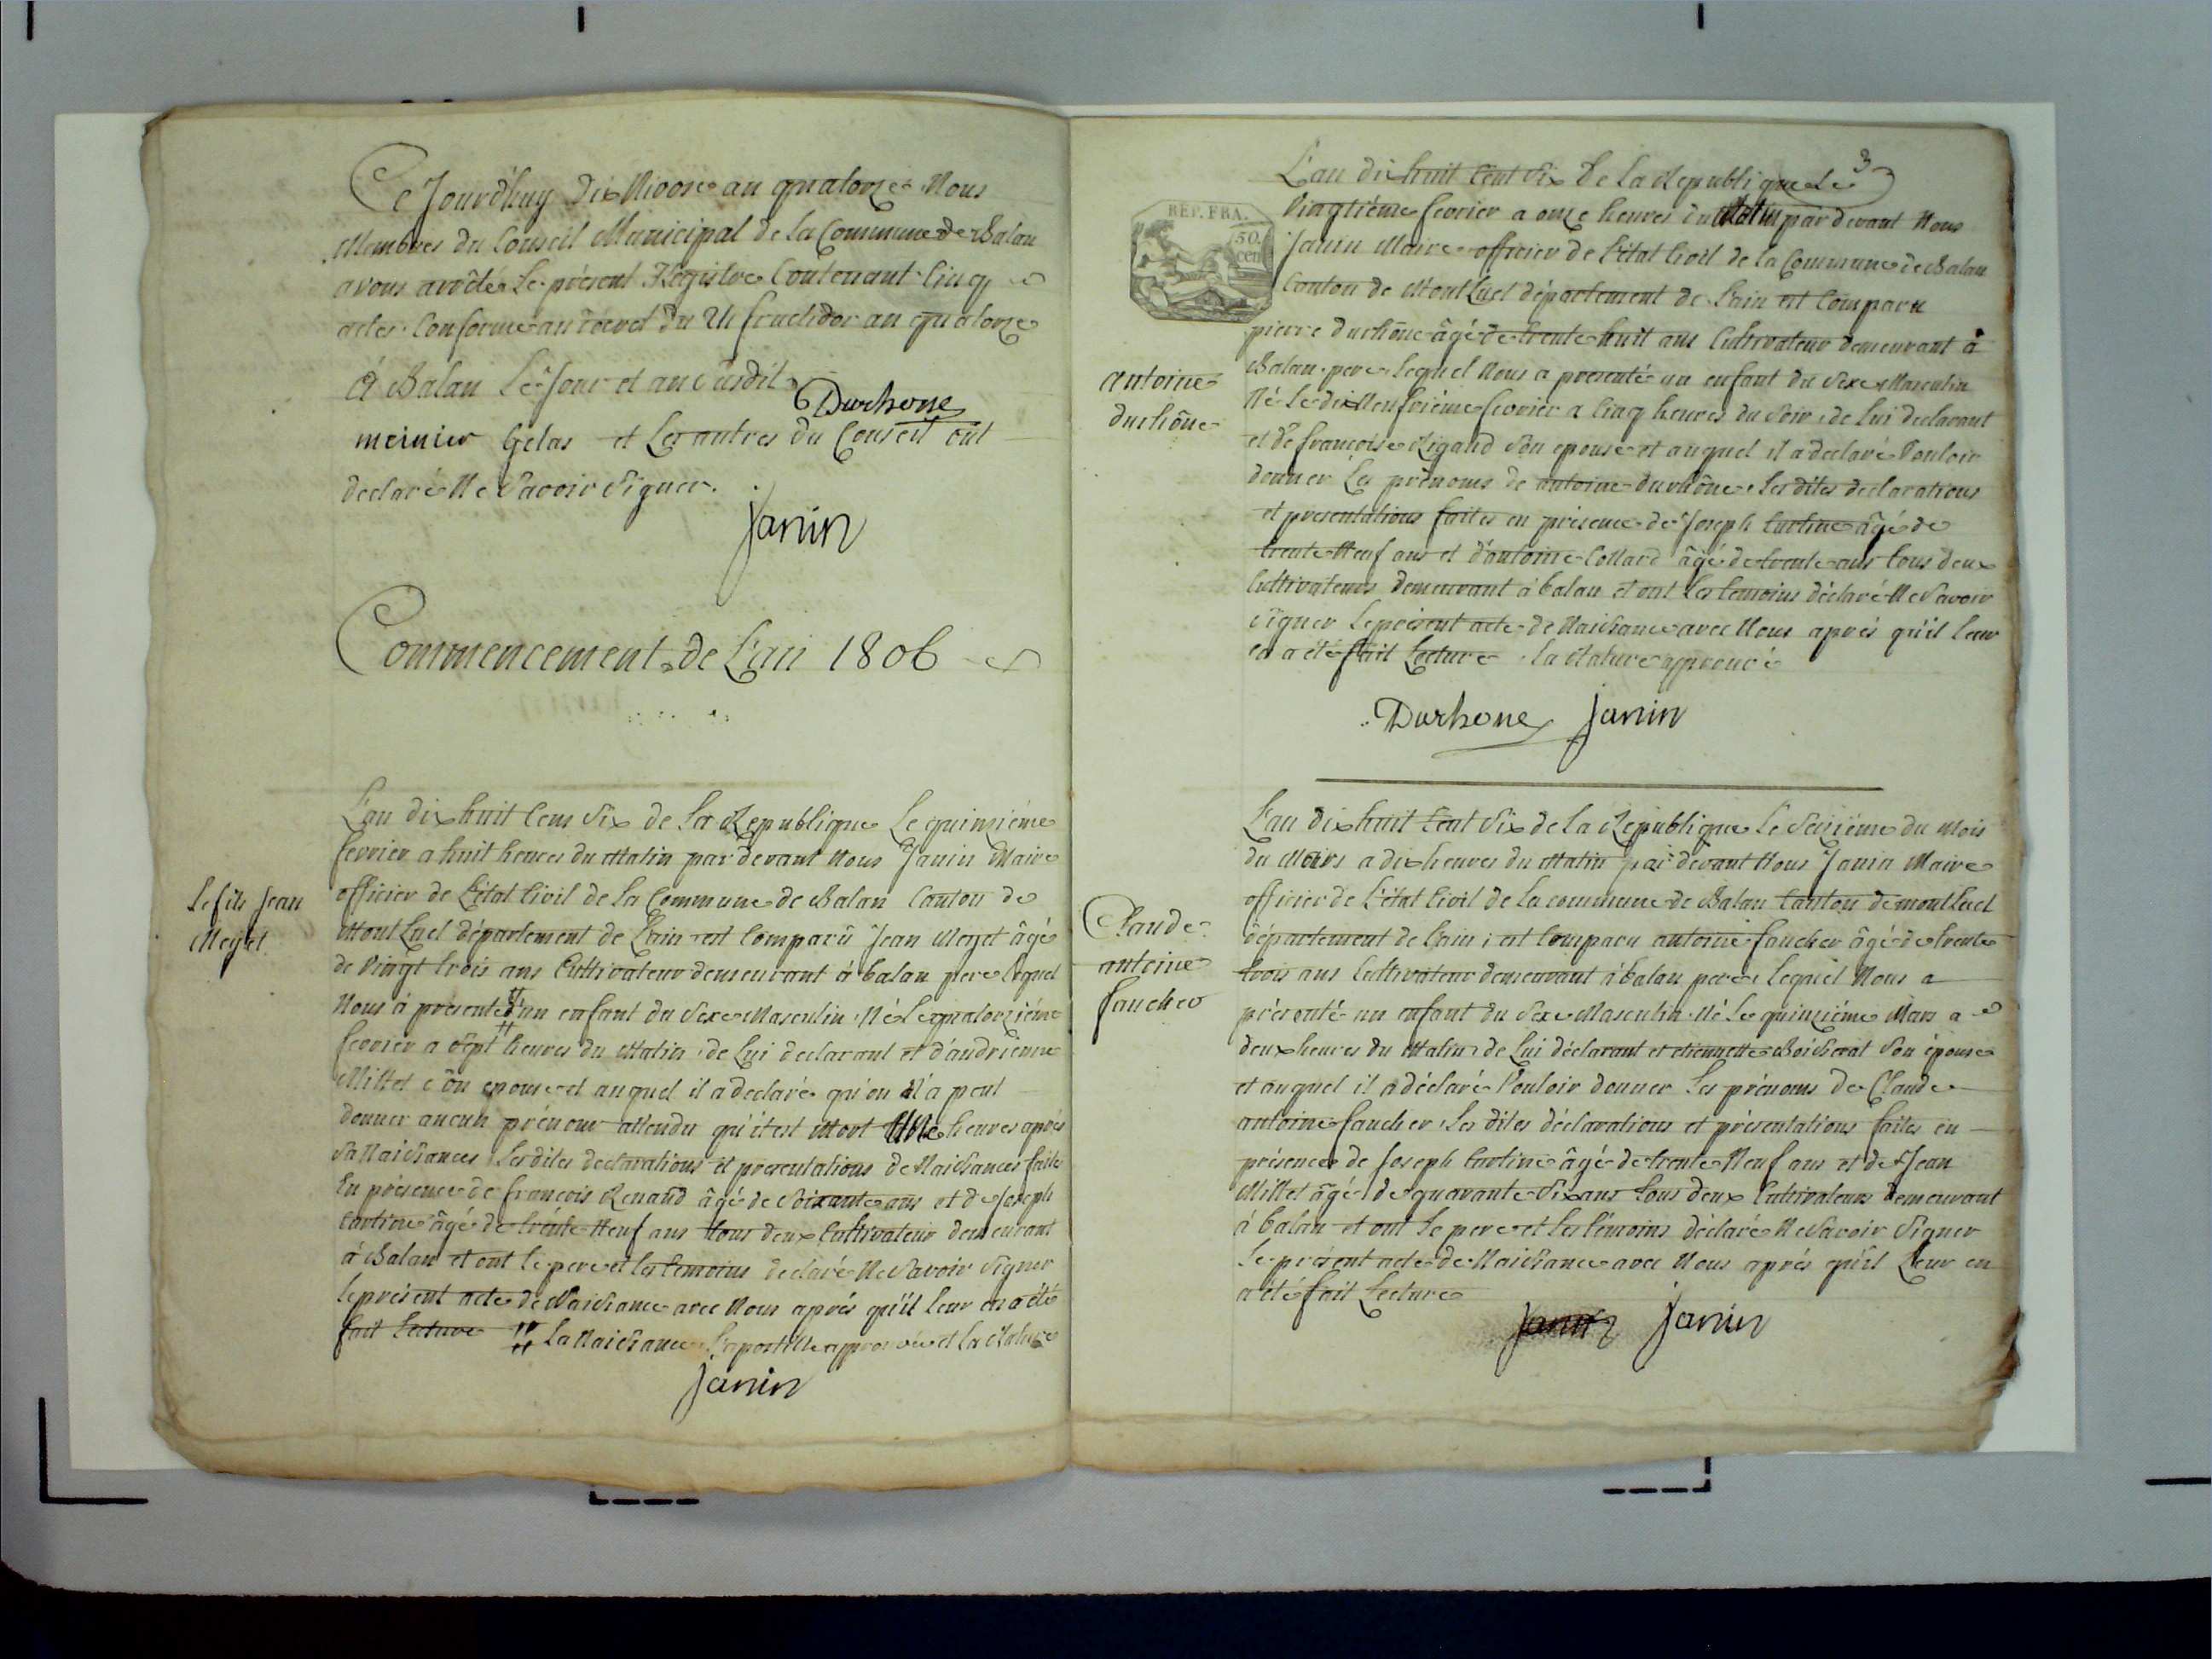 Ce Jourd'huy Dix Nivose an quatorze Nous
Membres du Conseil Municipal de la Commune de Balan
avons arrêté Le présent Registre Contenant Cinq
actes Conforme au décret du fructidor an quatorze
à Balan Le Jour et an susdit
Durhone
meinier Gelas et Les autres du Conseil ont
declaré Ne Savoir Signer.
Janin
Commencement de L'an 1806
Le fils Jean
Meyet
L'an dix huit Cens Six de la Republique Le quinzième
fevrier a huit heures du Matin par devant Nous Janin Maire
officier de L'état Civil de la Commune de Balan Canton de
MontLuel département de L'ain est Comparû Jean Meyet âgé
de Vingt trois ans Cultivateur demeurant à balan pere lequel
Nous à presenté d'un enfant du Sexe Masculin Né Le quatorzième
fevrier a Sept heures du Matin de Lui declarant et d'andrienne
Millet Son epouse et auquel il a declaré qu'on N'a peut
donner aucun prénom attendu qu'il est Mort Une heures aprés
Sa Naissances Les dites declarations et presentations de Naissances faite
En présence de françois Renaud âgé de Soixante ans et de Joseph
Cartine âgé de trente Neuf ans tous deux Cultivateur demeurant
à Balan et ont le pere et les temoins declaré Ne Savoir Signer
le présent acte de Naissance avec Nous aprés qu'il leur en a été
fait Lecture # La Naissance L'apostille approuvée et la Rature
Janin
3
REP. FRA.
50
cen
L'an dix huit Cent Six de la Republique Le
Vingtième fevrier a onze heures du Matin par devant Nous
Janin Maire officier de L'état Civil de la Commune de Balan
Canton de MontLuel département de L'ain est Comparu
pierre durhône âgé de trente huit ans Cultivateur demeurant à
Balan pere lequel Nous a presenté un enfant du Sexe Masculin
Né Le dix Neufvième fevrier a Cinq heures du Soir de Lui declarant
et de françoise Rigaud Son epouse et auquel il a declaré Vouloir
donner Les prénoms de antoine durhône Les dites declarations
et presentations faites en présence de Joseph Cartine âgé de
trente Neuf ans et d'antoine Collard âgé de trente ans tous deux
Cultivateurs demeurant à balan et ont Les temoins déclaré Ne Savoir
Signer Le présent acte de Naissance avec Nous aprés qu'il leur
en a été fait Lecture la Rature approuvé
antoine
durhône
Durhone Janin
Claude
antoine
faucher
L'an dix huit Cent Six de la Republique Le Seizième du Mois
du Mars a dix heures du Matin par devant Nous Janin Maire
officier de L'état Civil de la commune de Balan Canton de montLuel
département de L'ain ; est Comparu antoine faucher âgé de trente
trois ans Cultivateur demeurant à balan pere lequel Nous a
présenté un enfant du Sexe Masculin Né Le quinzième Mars a
deux heures du Matin de Lui déclarant et etiennette Son épouse
et auquel il a déclaré Vouloir donner Les prénoms de Claude
antoine faucher Les dites déclarations et présentations faites en
présences de Joseph Cartine âgé de trente Neuf ans et de Jean
Millet âgé de quarante Six ans tous deux Cultivateurs demeurant
à balan et ont Le pere et Les témoins déclaré Ne Savoir Signer
Le présent acte de Naissance avec Nous aprés qu'il Leur en
a été fait Lecture
Janin Janin